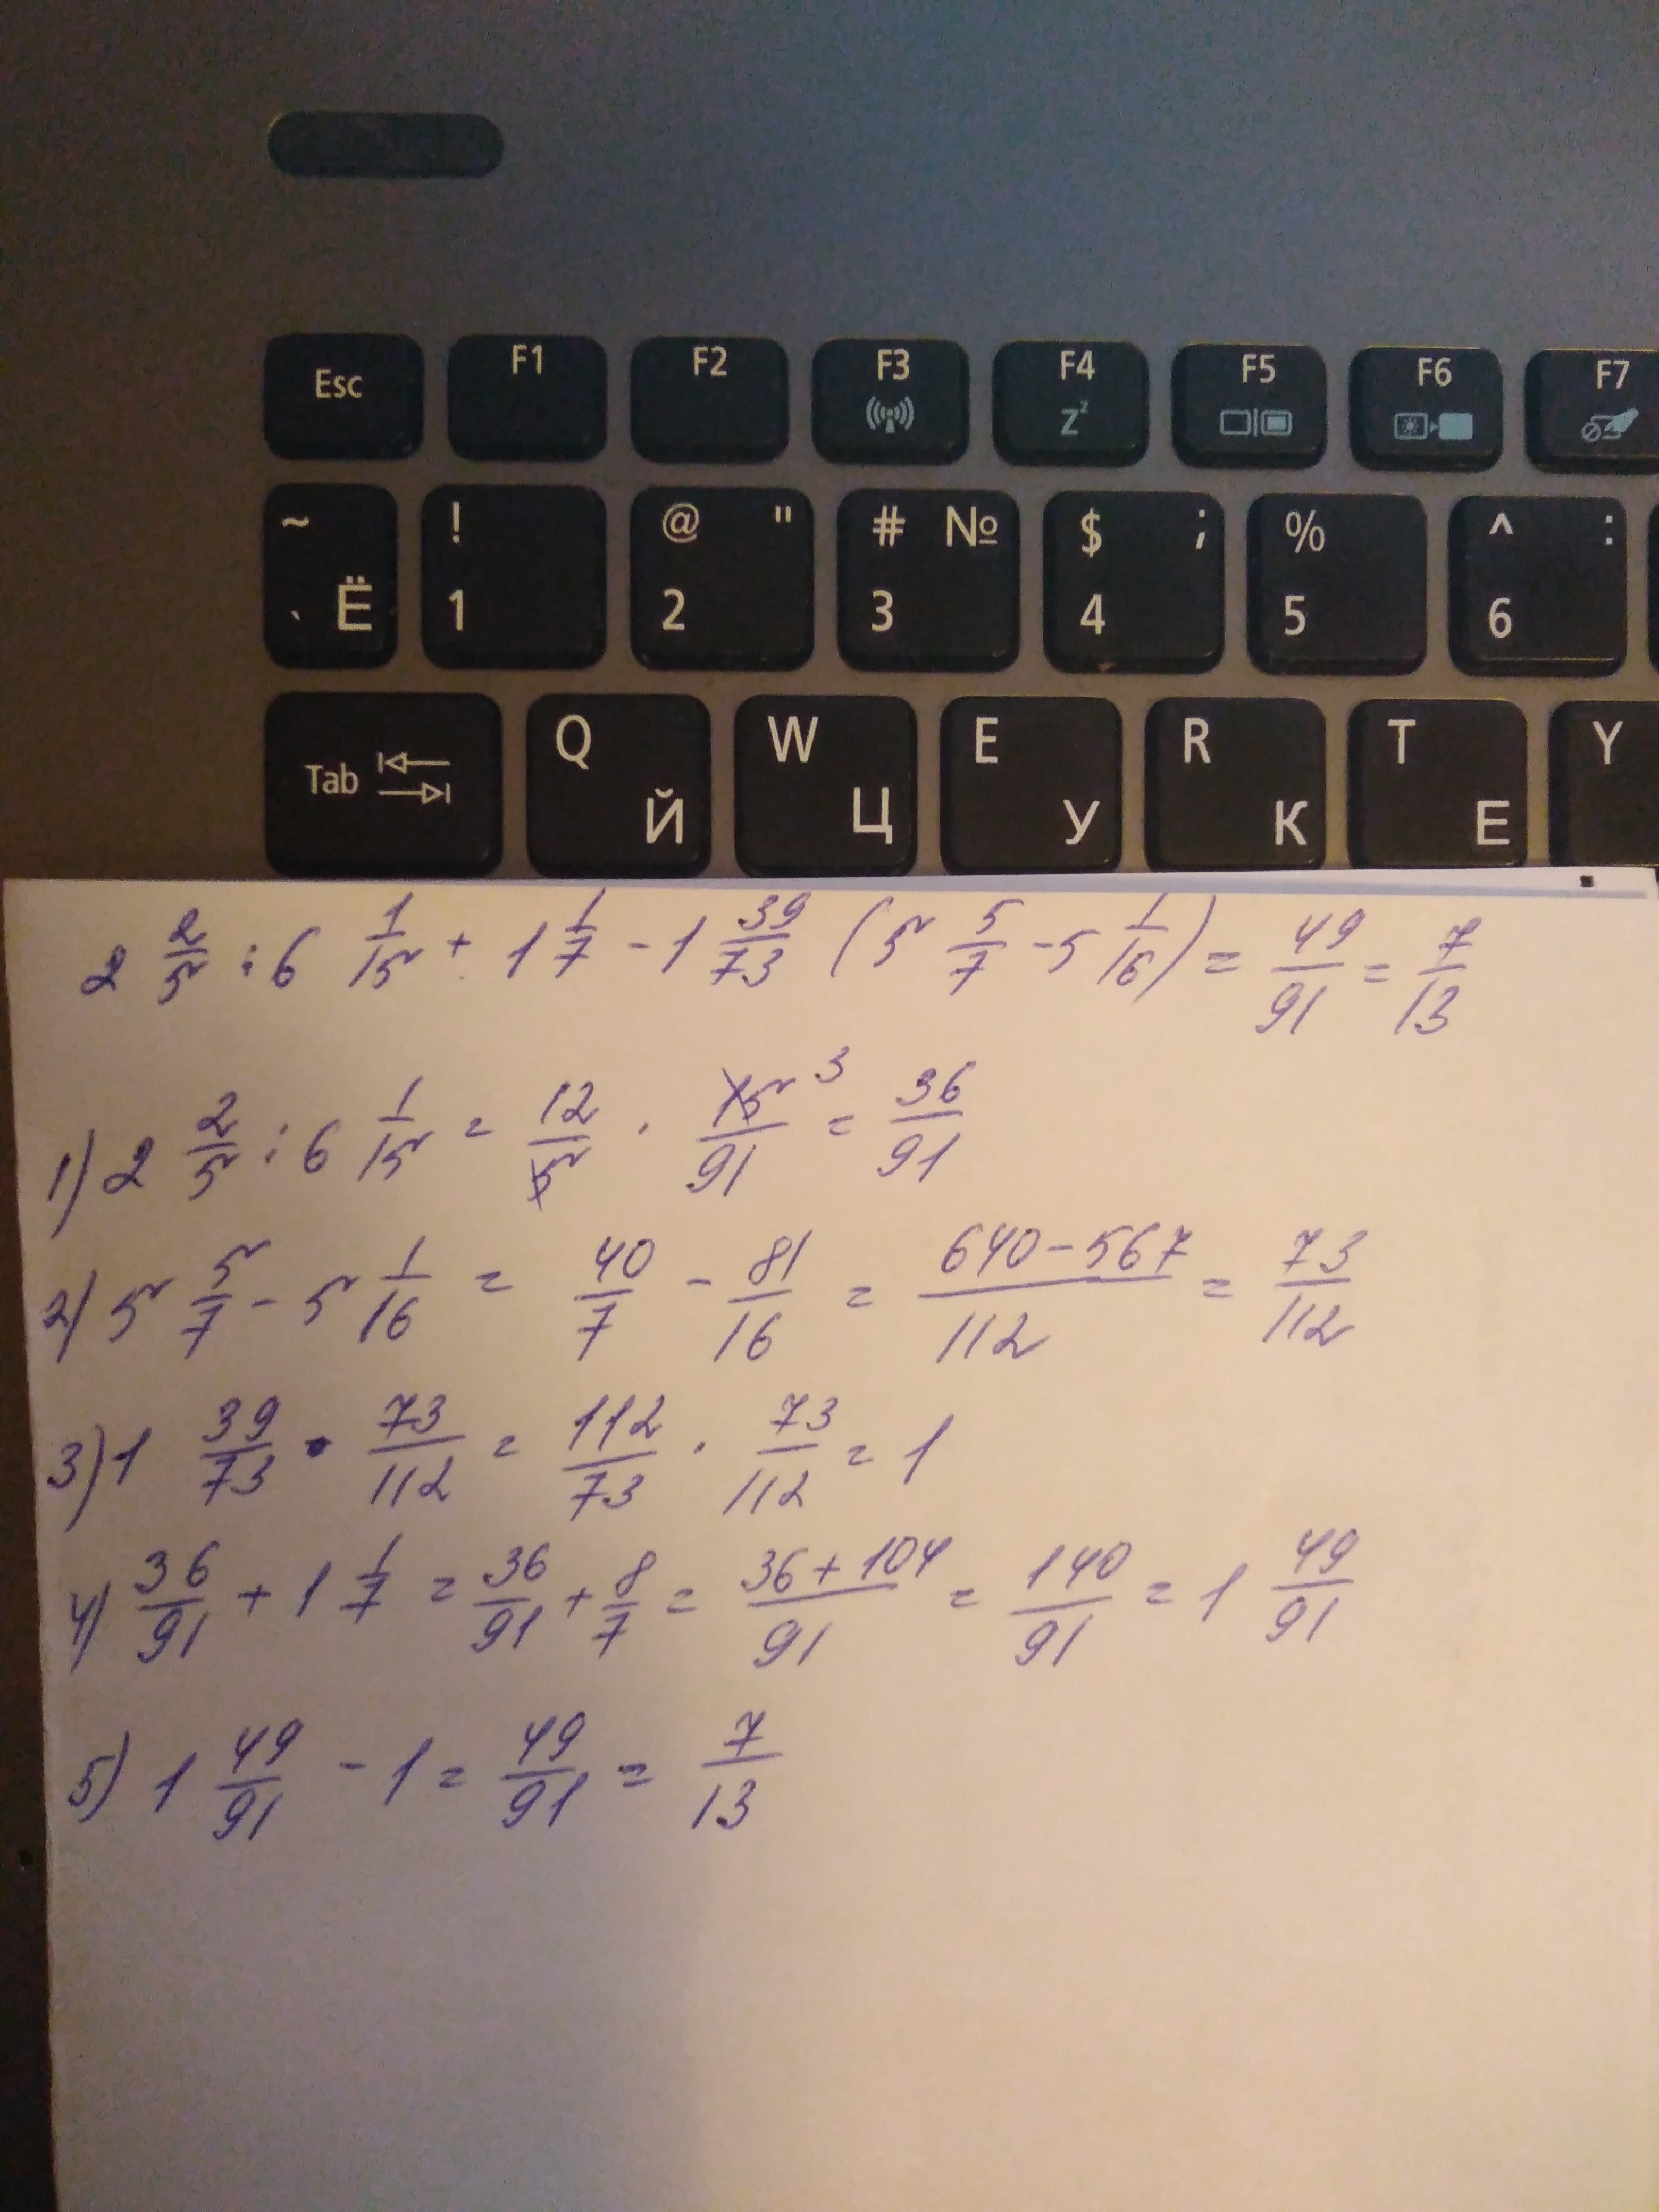 Esc F1 F2 F3 F4 Zz F5 F6 F7
~ ` Ё ! 1 @ " 2 # № 3 $ ; 4 % 5 ^ : 6
Tab Q Й W Ц E У R К T Е Y
2 2/5 : 6 1/15 + 1 1/7 - 1 39/73 (5 5/7 - 5 1/16) = 49/91 = 7/13
1) 2 2/5 : 6 1/15 = 12/5 · 15/91 3 = 36/91
2) 5 5/7 - 5 1/16 = 40/7 - 81/16 = 640-567/112 = 73/112
3) 1 39/73 · 73/112 = 112/73 · 73/112 = 1
4) 36/91 + 1 1/7 = 36/91 + 8/7 = 36+104/91 = 140/91 = 1 49/91
5) 1 49/91 - 1 = 49/91 = 7/13